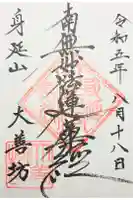 令和五年 八月十八日
南無妙法蓮華経
身延山
大善坊